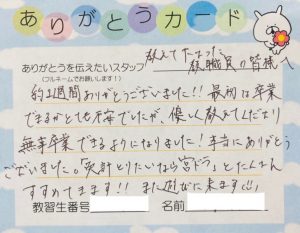 ありがとうカード
教えて下さった
教職員の皆様へ
ありがとうを伝えたいスタッフ
(フルネームでお願いします!)
約2週間ありがとうございました!! 最初は卒業
できるかとても不安でしたが、優しく教えて下さり
無事卒業できるようになりました!本当にありがとう
ございました。「免許とりたいなら宮ドラ」とたくさん
すすめてきます!! また遊びに来ます
教習生番号
名前